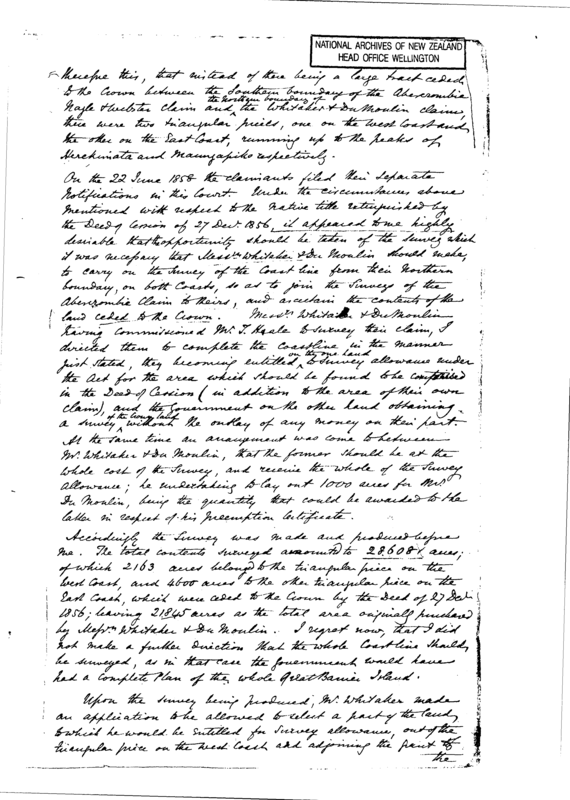 NATIONAL ARCHIVES OF NEW ZEALAND
HEAD OFFICE WELLINGTON
therefore this, that instead of there being a large tract ceded
to the Crown between the Southern boundary of the Abercrombie
Nagle & Webster claim and the Northern boundary of the Whitaker & Du Moulin claim,
there were two triangular pieces, one on the West Coast and
the other on the East Coast, running up to the peaks of
Hirakimata and Maungapiko respectively.
On the 22 June 1858 the claimants filed their separate
Notifications in this Court. Under the circumstances above
mentioned with respect to the Native title relinquished by
the Deed of Cession of 27 Decr. 1856, it appeared to me highly
desirable that the opportunity should be taken of the survey which
it was necessary that Messrs Whitaker & Du Moulin should make,
to carry on the Survey of the Coast line from their Northern
boundary, on both Coasts, so as to join the Surveys of the
Abercrombie Claim to theirs, and ascertain the contents of the
land ceded to the Crown. Messrs Whitaker & Du Moulin
having commissioned Mr. T. Heale to survey their claim, I
directed them to complete the coastline in the manner
just stated, they becoming entitled on the one hand to survey allowance under
the Act for the area which should be found to be comprised
in the Deed of Cession (in addition to the area of their own
claim), and the Government on the other hand obtaining
a survey of the Crown land without the outlay of any money on their part.
At the same time an arrangement was come to between
Mr. Whitaker & Du Moulin, that the former should be at the
whole cost of the Survey, and receive the whole of the Survey
allowance; he undertaking to lay out 1000 acres for Mr.
Du Moulin, being the quantity that could be awarded to the
latter in respect of his Preemption Certificate.
Accordingly the Survey was made and produced before
me. The total contents surveyed amounts to 28,608½ acres;
of which 2163 acres belong to the triangular piece on the
West Coast, and 4600 acres to the other triangular piece on the
East Coast, which were ceded to the Crown by the Deed of 27 Decr.
1856; leaving 21845 acres as the total area originally purchased
by Messrs Whitaker & Du Moulin. I regret now, that I did
not make a further direction that the whole Coast line should
be surveyed, as in that case the Government would have
had a complete Plan of the whole Great Barrier Island.
Upon the survey being produced, Mr. Whitaker made
an application to be allowed to select a part of the land,
to which he would be entitled for Survey allowance, out of the
triangular piece on the West Coast and adjoining the grant to
the